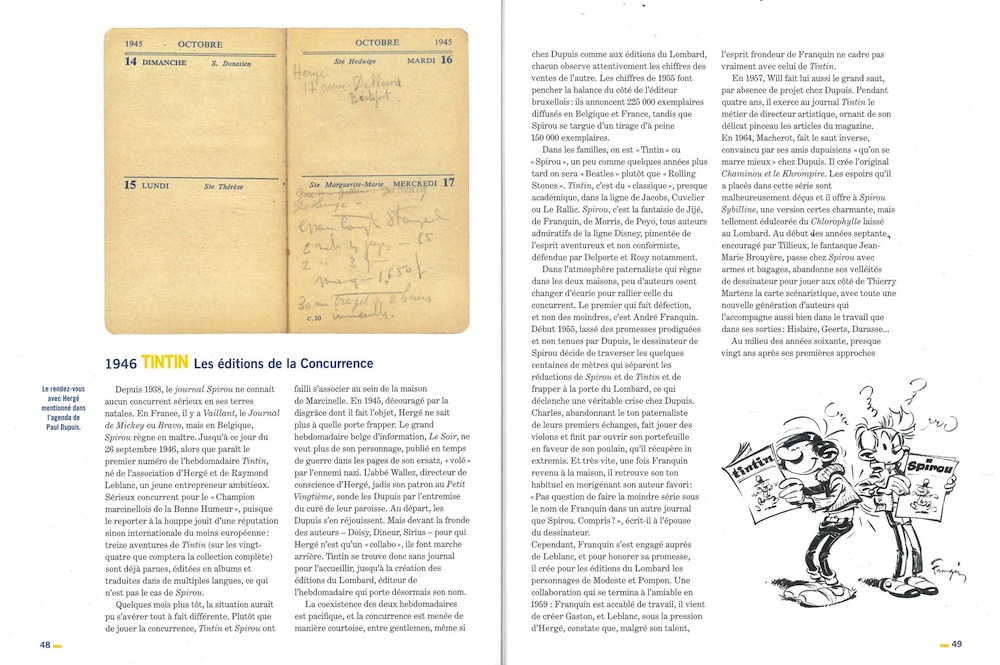 1945 OCTOBRE
14 DIMANCHE S. Donatien
15 LUNDI Ste Thérèse
OCTOBRE 1945
Ste Hedwige MARDI 16
Hergé
17 avenue Delleur
Boitsfort
Ste Marguerite-Marie MERCREDI 17
C.10
1946 TINTIN Les éditions de la Concurrence
Le rendez-vous
avec Hergé
mentionné dans
l'agenda de
Paul Dupuis.
Depuis 1938, le journal Spirou ne connait
aucun concurrent sérieux en ses terres
natales. En France, il y a Vaillant, le Journal
de Mickey ou Bravo, mais en Belgique,
Spirou règne en maître. Jusqu'à ce jour du
26 septembre 1946, alors que paraît le
premier numéro de l'hebdomadaire Tintin,
né de l'association d'Hergé et de Raymond
Leblanc, un jeune entrepreneur ambitieux.
Sérieux concurrent pour le « Champion
marcinellois de la Bonne Humeur », puisque
le reporter à la houppe jouit d'une réputation
sinon internationale du moins européenne :
treize aventures de Tintin (sur les vingt-
quatre que comptera la collection complète)
sont déjà parues, éditées en albums et
traduites dans de multiples langues, ce qui
n'est pas le cas de Spirou.
Quelques mois plus tôt, la situation aurait
pu s'avérer tout à fait différente. Plutôt que
de jouer la concurrence, Tintin et Spirou ont
failli s'associer au sein de la maison
de Marcinelle. En 1945, découragé par la
disgrâce dont il fait l'objet, Hergé ne sait
plus à quelle porte frapper. Le grand
hebdomadaire belge d'information, Le Soir, ne
veut plus de son personnage, publié en temps
de guerre dans les pages de son ersatz, « volé »
par l'ennemi nazi. L'abbé Wallez, directeur de
conscience d'Hergé, jadis son patron au Petit
Vingtième, sonde les Dupuis par l'entremise
du curé de leur paroisse. Au départ, les
Dupuis s'en réjouissent. Mais devant la fronde
des auteurs – Doisy, Dineur, Sirius – pour qui
Hergé n'est qu'un « collabo », ils font marche
arrière. Tintin se trouve donc sans journal
pour l'accueillir, jusqu'à la création des
éditions du Lombard, éditeur de
l'hebdomadaire qui porte désormais son nom.
La coexistence des deux hebdomadaires
est pacifique, et la concurrence est menée de
manière courtoise, entre gentlemen, même si
48
chez Dupuis comme aux éditions du Lombard,
chacun observe attentivement les chiffres des
ventes de l'autre. Les chiffres de 1955 font
pencher la balance du côté de l'éditeur
bruxellois : ils annoncent 225 000 exemplaires
diffusés en Belgique et France, tandis que
Spirou se targue d'un tirage d'à peine
150 000 exemplaires.
Dans les familles, on est « Tintin » ou
« Spirou », un peu comme quelques années plus
tard on sera « Beatles » plutôt que « Rolling
Stones ». Tintin, c'est du « classique », presque
académique, dans la ligne de Jacobs, Cuvelier
ou Le Rallic. Spirou, c'est la fantaisie de Jijé,
de Franquin, de Morris, de Peyo, tous auteurs
admiratifs de la ligne Disney, pimentée de
l'esprit aventureux et non conformiste,
défendue par Delporte et Rosy notamment.
Dans l'atmosphère paternaliste qui règne
dans les deux maisons, peu d'auteurs osent
changer d'écurie pour rallier celle du
concurrent. Le premier qui fait défection,
et non des moindres, c'est André Franquin.
Début 1955, lassé des promesses prodiguées
et non tenues par Dupuis, le dessinateur de
Spirou décide de traverser les quelques
centaines de mètres qui séparent les
rédactions de Spirou et de Tintin et de
frapper à la porte du Lombard, ce qui
déclenche une véritable crise chez Dupuis.
Charles, abandonnant le ton paternaliste
de leurs premiers échanges, fait jouer des
violons et finit par ouvrir son portefeuille
en faveur de son poulain, qu'il récupère in
extremis. Et très vite, une fois Franquin
revenu à la maison, il retrouve son ton
habituel en morigénant son auteur favori :
« Pas question de faire la moindre série sous
le nom de Franquin dans un autre journal
que Spirou. Compris ? », écrit-il à l'épouse
du dessinateur.
Cependant, Franquin s'est engagé auprès
de Leblanc, et pour honorer sa promesse,
il crée pour les éditions du Lombard les
personnages de Modeste et Pompon. Une
collaboration qui se termina à l'amiable en
1959 : Franquin est accablé de travail, il vient
de créer Gaston, et Leblanc, sous la pression
d'Hergé, constate que, malgré son talent,
l'esprit frondeur de Franquin ne cadre pas
vraiment avec celui de Tintin.
En 1957, Will fait lui aussi le grand saut,
par absence de projet chez Dupuis. Pendant
quatre ans, il exerce au journal Tintin le
métier de directeur artistique, ornant de son
délicat pinceau les articles du magazine.
En 1964, Macherot, fait le saut inverse,
convaincu par ses amis dupuisiens « qu'on se
marre mieux » chez Dupuis. Il crée l'original
Chaminou et le Khrompire. Les espoirs qu'il
a placés dans cette série sont
malheureusement déçus et il offre à Spirou
Sibylline, une version certes charmante, mais
tellement édulcorée du Chlorophylle laissé
au Lombard. Au début des années septante,
encouragé par Tillieux, le fantasque Jean-
Marie Brouyère, passe chez Spirou avec
armes et bagages, abandonne ses velléités
de dessinateur pour jouer aux côté de Thierry
Martens la carte scénaristique, avec toute une
nouvelle génération d'auteurs qui
l'accompagne aussi bien dans le travail que
dans ses sorties : Hislaire, Geerts, Darasse...
Au milieu des années soixante, presque
vingt ans après ses premières approches
tintin
Spirou
Franquin
49